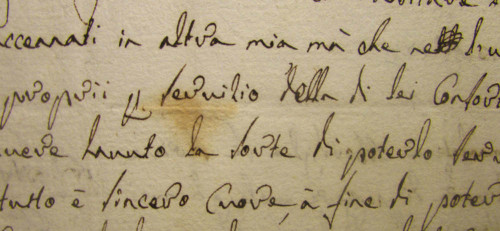 accennati in altra mia mà che
proprii p servilio della di lei Consor
havuto la sorte di poterlo ser
tutto è sincero Cuore, à fine di poter